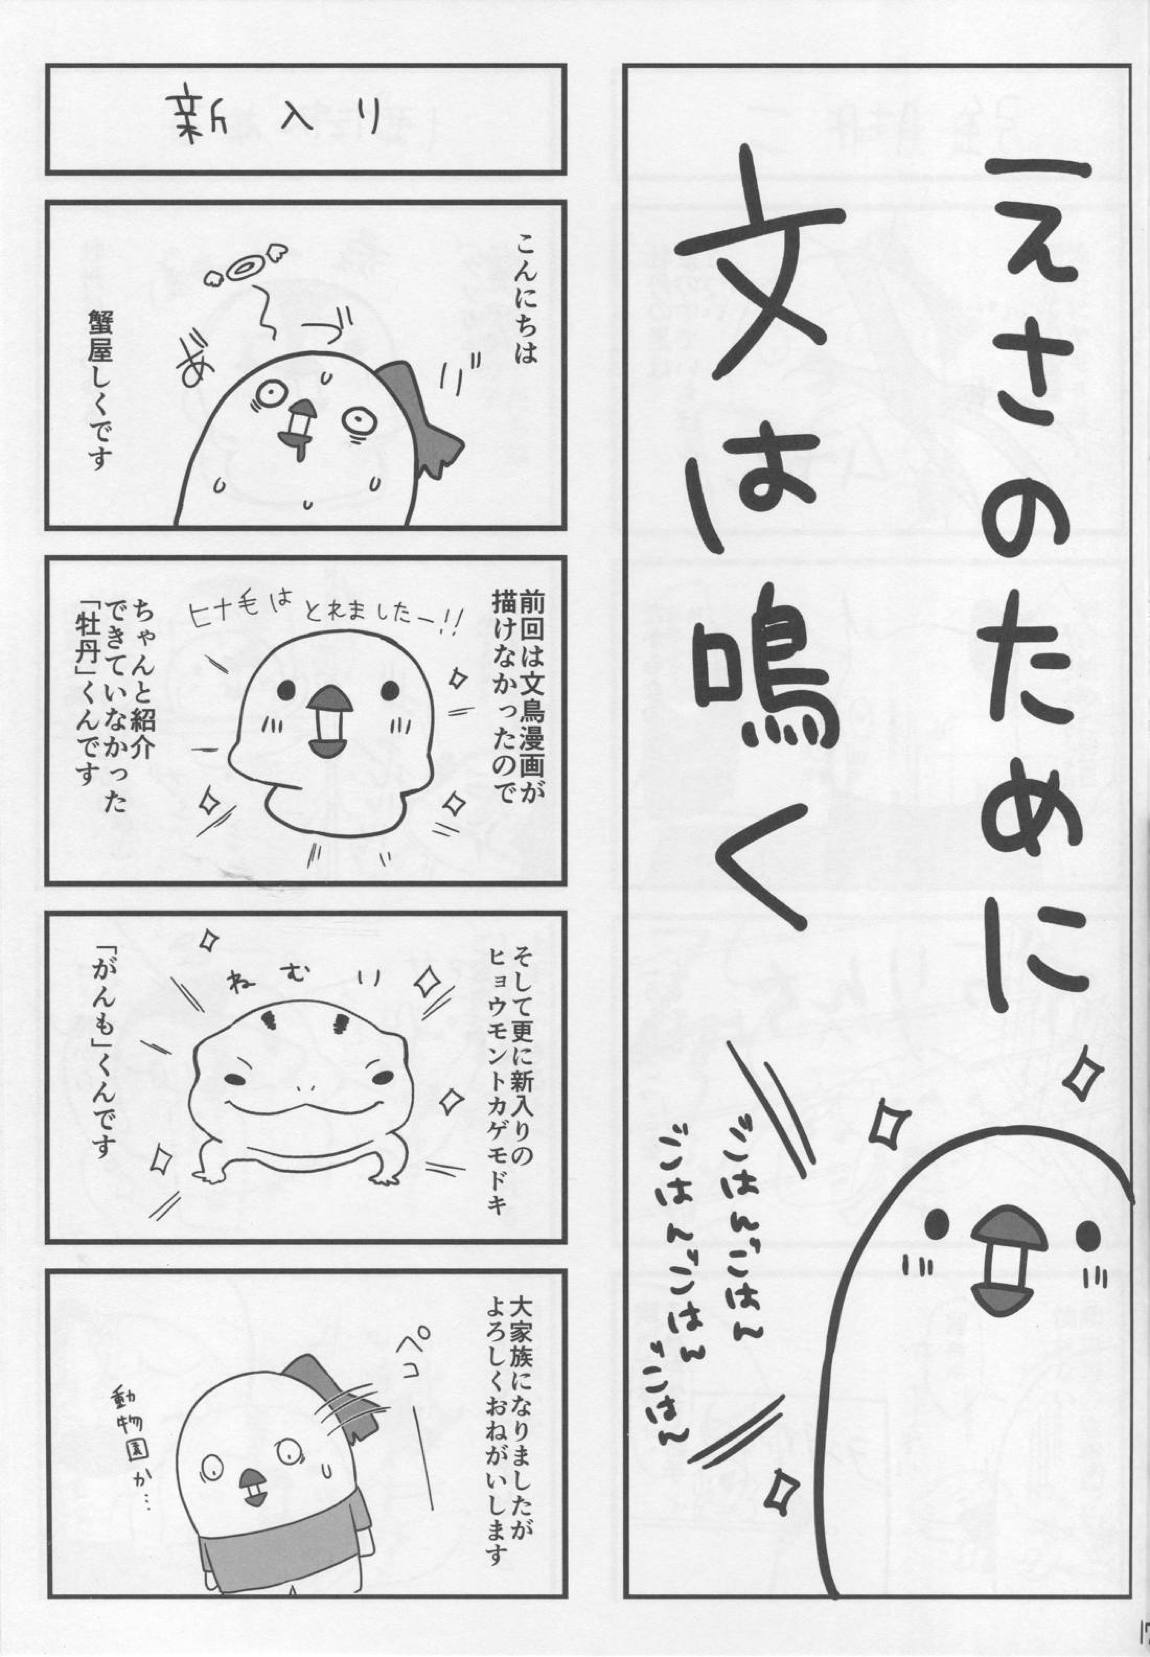 えさのために
文は鳴く
ごはんごはん
ごはんごはん
ごはん
新入り
こんにちは
づ
蟹屋しくです
前回は文鳥漫画が
描けなかったので
ヒナ毛は とれましたー!!
ちゃんと紹介
できていなかった
「牡丹」くんです
そして更に新入りの
ヒョウモントカゲモドキ
ねむり
「がんも」くんです
大家族になりましたが
よろしくおねがいします
ペコ
動物園か…
17